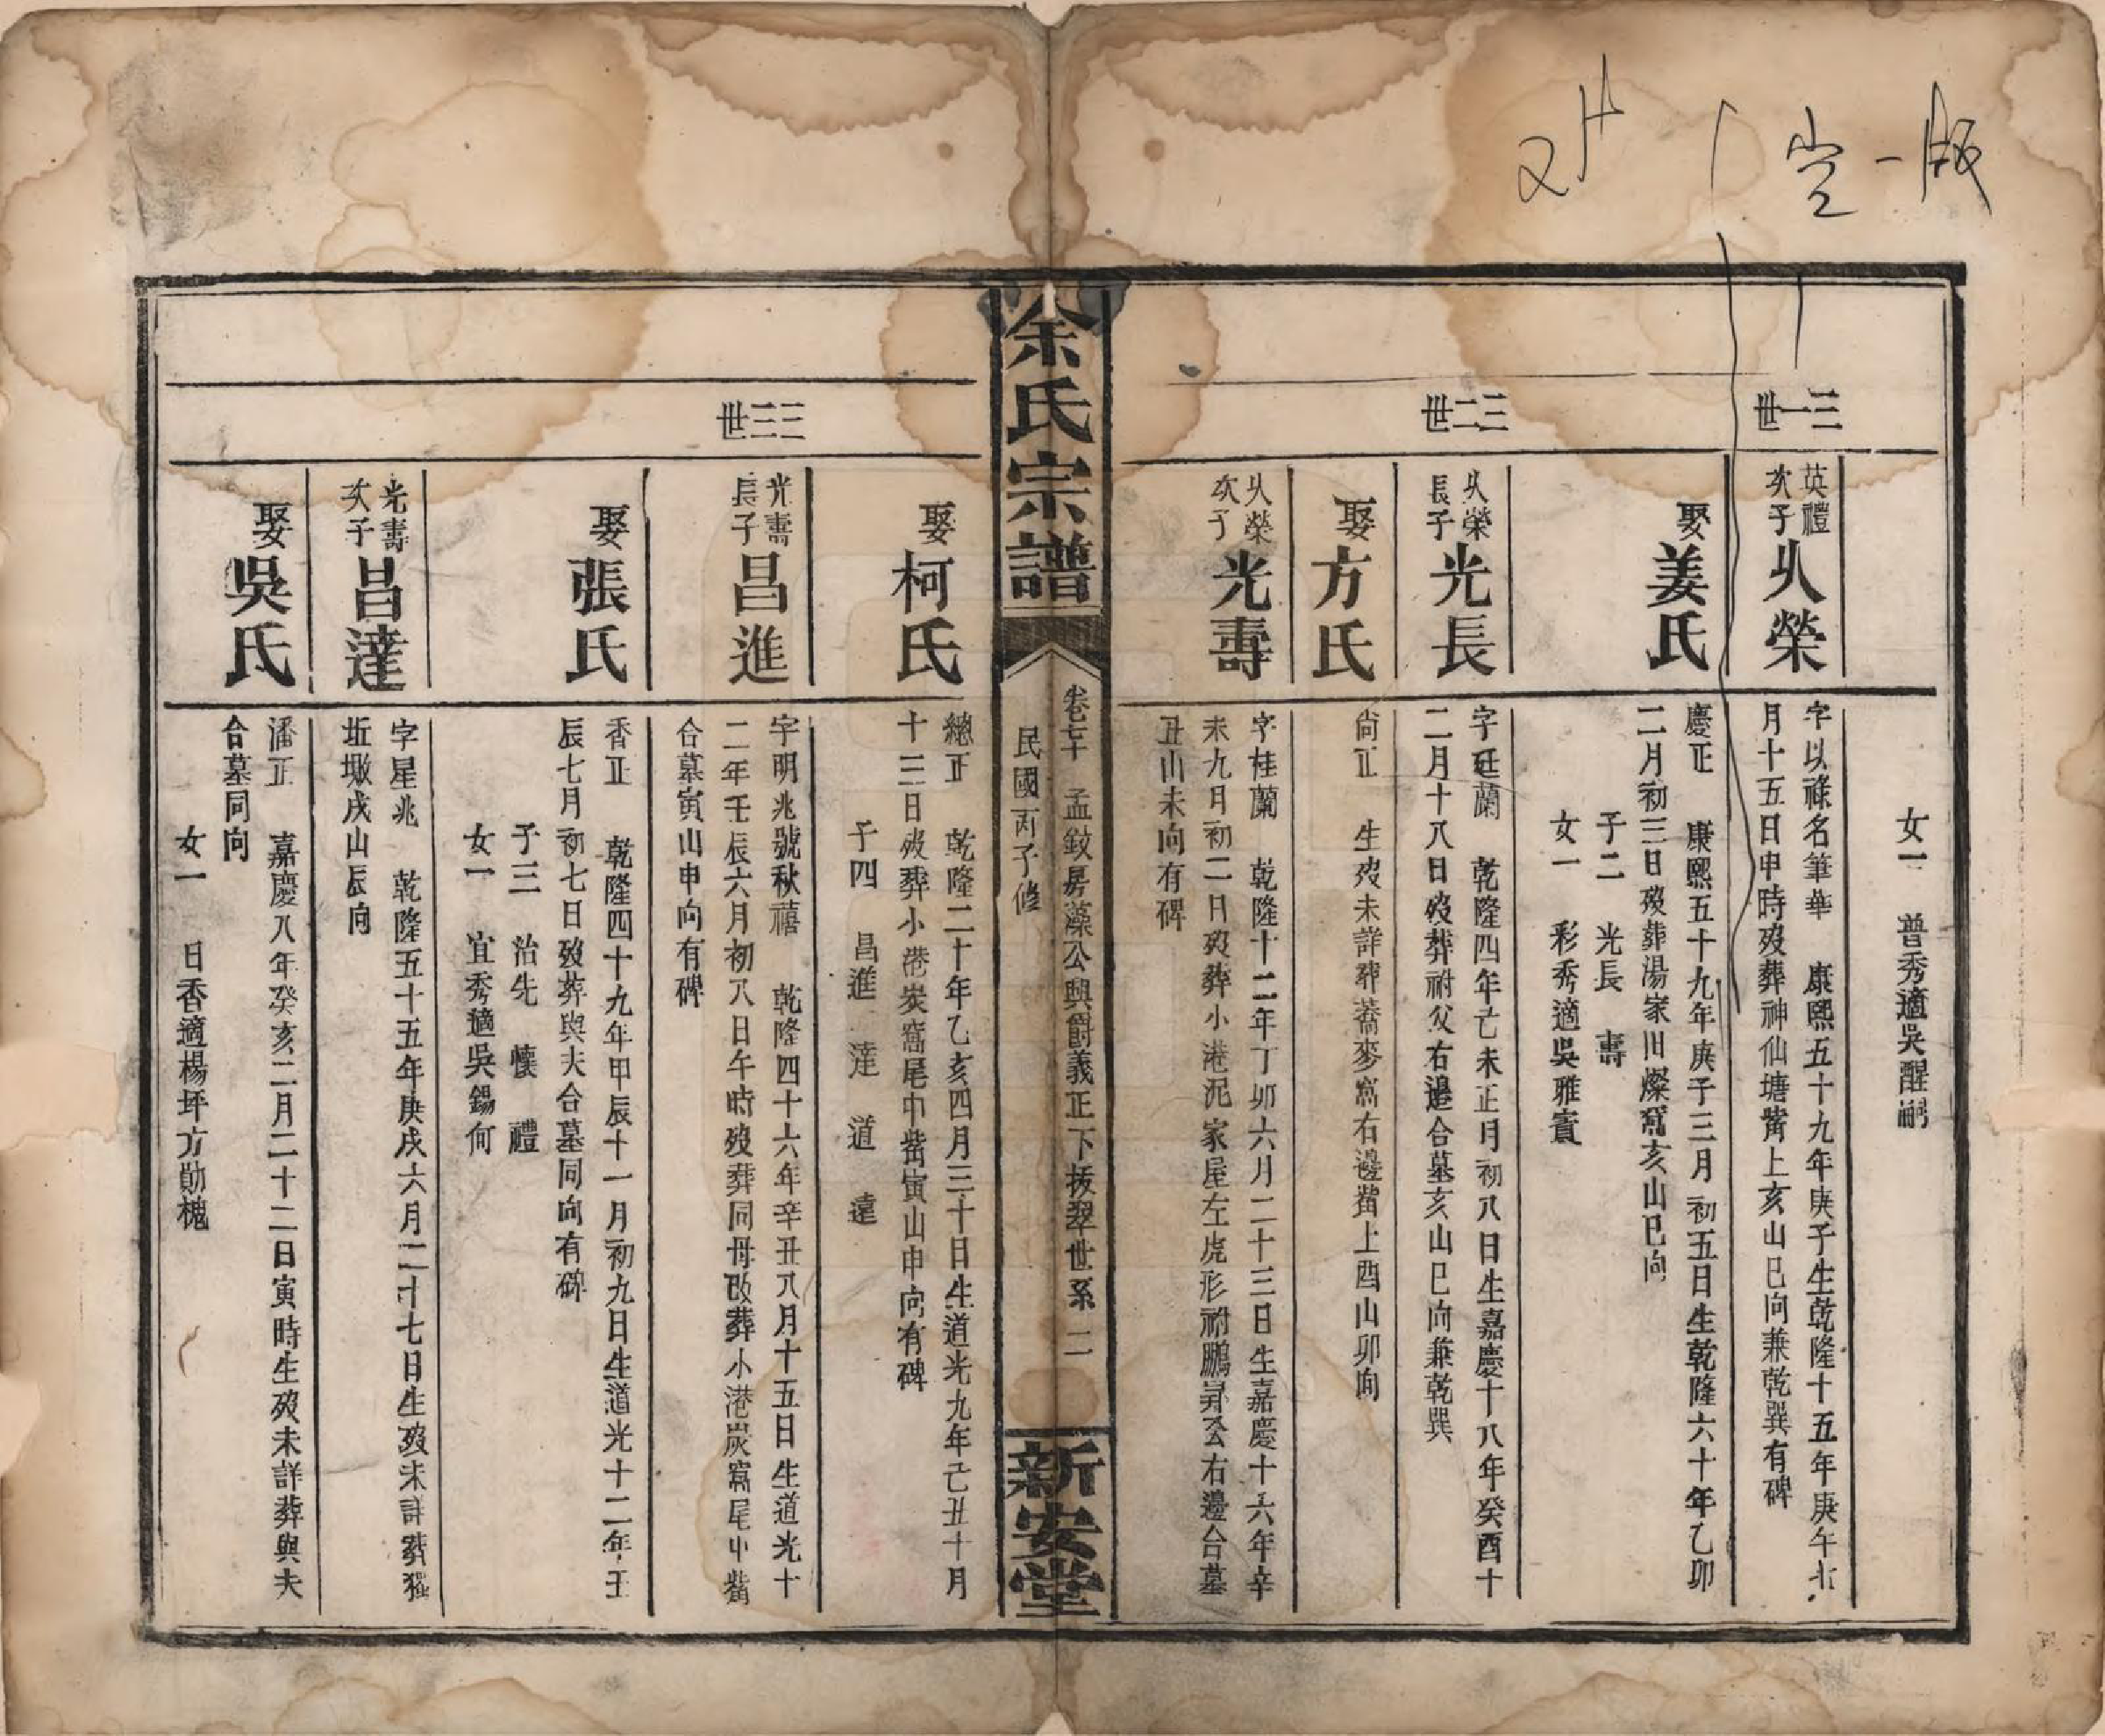 一版
三一世
三二世
女一 普秀適吳醒嗣
英禮
次子
乆榮
字以祿名筆華 康熙五十九年庚子生乾隆十五年庚午
月十五日申時歿葬神仙塘觜上亥山巳向兼乾巽有碑
娶姜氏
慶正 康熙五十九年庚子三月初五日生乾隆六十年乙卯
二月初三日歿葬湯家田燦窩亥山巳向
子二 光長 壽
女一 彩秀適吳雅賓
乆榮
長子
光長
字廷蘭 乾隆四年己未正月初八日生嘉慶十八年癸酉十
二月十八日歿葬祔父右邉合墓亥山巳向兼乾巽
娶方氏
尙正 生歿未詳葬蕎麥窩右邉觜上酉山卯向
乆榮
次子
光壽
字桂蘭 乾隆十二年丁卯六月二十三日生嘉慶十六年辛
未九月初二日歿葬小港泥家屋左虎形祔鵬昇公右邊合墓
丑山未向有碑
余氏宗譜
卷七十 孟鈘房藻公興爵義正下拔翠世系 二
民國丙子修
新安堂
三三世
娶柯氏
總正 乾隆二十年乙亥四月三十日生道光九年己丑十月
十三日歿葬小港炭窩尾中觜寅山申向有碑
子四 昌進 達 道 遠
光壽
長子
昌進
字明兆號秋禧 乾隆四十六年辛丑八月十五日生道光十
二年壬辰六月初八日午時歿葬同母改葬小港炭窩尾中觜
合墓寅山申向有碑
娶張氏
香正 乾隆四十九年甲辰十一月初九日生道光十二年壬
辰七月初七日歿葬與夫合墓同向有碑
子三 治先 懷 禮
女一 宜秀適吳錫何
光壽
次子
昌達
字星兆 乾隆五十五年庚戌六月二十七日生歿未詳葬獾
坵墩戌山辰向
娶吳氏
潘正 嘉慶八年癸亥二月二十二日寅時生歿未詳葬與夫
合墓同向
女一 日香適楊坪方勛槐